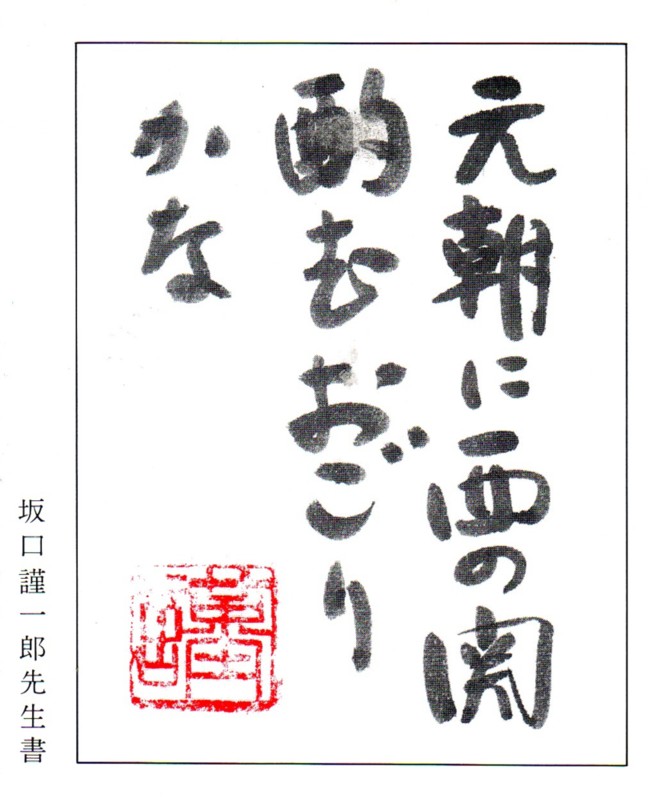 元朝に西の関
酌むおごり
かな
坂口謹一郎先生書